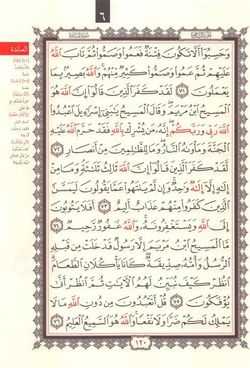 ٦
المائدة
وَحَسِبُوٓا۟ أَلَّا تَكُونَ فِتْنَةٌ فَعَمُوا۟ وَصَمُّوا۟ ثُمَّ تَابَ ٱللَّهُ
عَلَيْهِمْ ثُمَّ عَمُوا۟ وَصَمُّوا۟ كَثِيرٌ مِّنْهُمْ وَٱللَّهُ بَصِيرٌۢ بِمَا
يَعْمَلُونَ ٧١ لَقَدْ كَفَرَ ٱلَّذِينَ قَالُوٓا۟ إِنَّ ٱللَّهَ هُوَ
ٱلْمَسِيحُ ٱبْنُ مَرْيَمَ وَقَالَ ٱلْمَسِيحُ يَٰبَنِىٓ إِسْرَٰٓءِيلَ ٱعْبُدُوا۟
ٱللَّهَ رَبِّى وَرَبَّكُمْ إِنَّهُۥ مَن يُشْرِكْ بِٱللَّهِ فَقَدْ حَرَّمَ ٱللَّهُ عَلَيْهِ
ٱلْجَنَّةَ وَمَأْوَىٰهُ ٱلنَّارُ وَمَا لِلظَّٰلِمِينَ مِنْ أَنصَارٍ ٧٢
لَّقَدْ كَفَرَ ٱلَّذِينَ قَالُوٓا۟ إِنَّ ٱللَّهَ ثَالِثُ ثَلَٰثَةٍ وَمَا مِنْ
إِلَٰهٍ إِلَّآ إِلَٰهٌ وَٰحِدٌ وَإِن لَّمْ يَنتَهُوا۟ عَمَّا يَقُولُونَ لَيَمَسَّنَّ
ٱلَّذِينَ كَفَرُوا۟ مِنْهُمْ عَذَابٌ أَلِيمٌ ٧٣ أَفَلَا يَتُوبُونَ
إِلَى ٱللَّهِ وَيَسْتَغْفِرُونَهُۥ وَٱللَّهُ غَفُورٌ رَّحِيمٌ ٧٤
مَّا ٱلْمَسِيحُ ٱبْنُ مَرْيَمَ إِلَّا رَسُولٌ قَدْ خَلَتْ مِن قَبْلِهِ
ٱلرُّسُلُ وَأُمُّهُۥ صِدِّيقَةٌ كَانَا يَأْكُلَانِ ٱلطَّعَامَ
ٱنظُرْ كَيْفَ نُبَيِّنُ لَهُمُ ٱلْءَايَٰتِ ثُمَّ ٱنظُرْ أَنَّىٰ
يُؤْفَكُونَ ٧٥ قُلْ أَتَعْبُدُونَ مِن دُونِ ٱللَّهِ مَا لَا
يَمْلِكُ لَكُمْ ضَرًّا وَلَا نَفْعًا وَٱللَّهُ هُوَ ٱلسَّمِيعُ ٱلْعَلِيمُ ٧٦
١٢٠